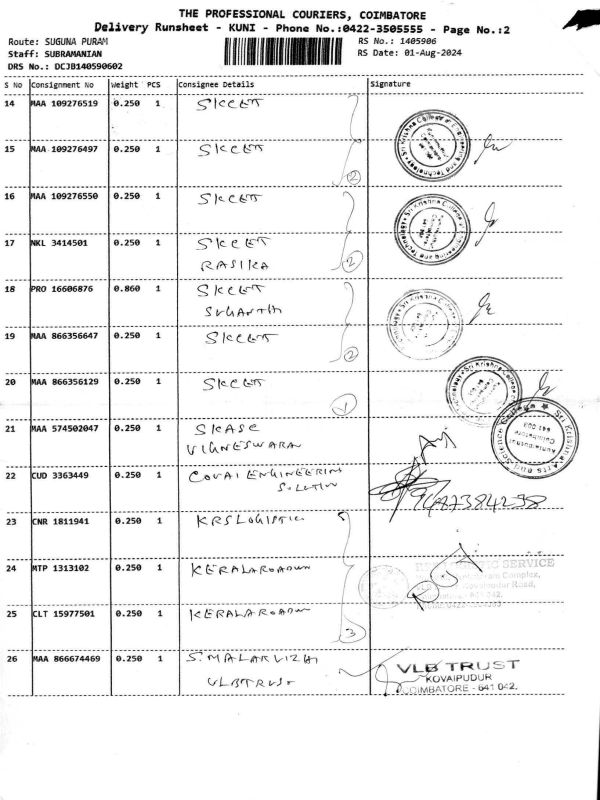 THE PROFESSIONAL COURIERS, COIMBATORE
Delivery Runsheet - KUNI - Phone No.:0422-3505555 - Page No.:2
Route: SUGUNA PURAM
RS No.: 1405906
Staff: SUBRAMANIAN
RS Date: 01-Aug-2024
DRS No.: DCJB140590602
S No Consignment No Weight PCS Consignee Details Signature
14 MAA 109276519 0.250 1 SKCET
15 MAA 109276497 0.250 1 SKCET
2
16 MAA 109276550 0.250 1 SKCET
17 NKL 3414501 0.250 1 SKCET
RASIKA 2
18 PRO 16606876 0.860 1 SKCET
SUGANTH
19 MAA 866356647 0.250 1 SKCET
2
20 MAA 866356129 0.250 1 SKCET
1
21 MAA 574502047 0.250 1 SKASC
VIGNESWARAN
22 CUD 3363449 0.250 1 COVAI ENGINEERING
SOLUTION
23 CNR 1811941 0.250 1 KRS LOGISTIC
24 MTP 1313102 0.250 1 KERALAROADWN
25 CLT 15977501 0.250 1 KERALAROADWN
3
26 MAA 866674469 0.250 1 S. MALARVIZHI
VLB TRUST
VLB TRUST
KOVAIPUDUR
COIMBATORE - 641 042.